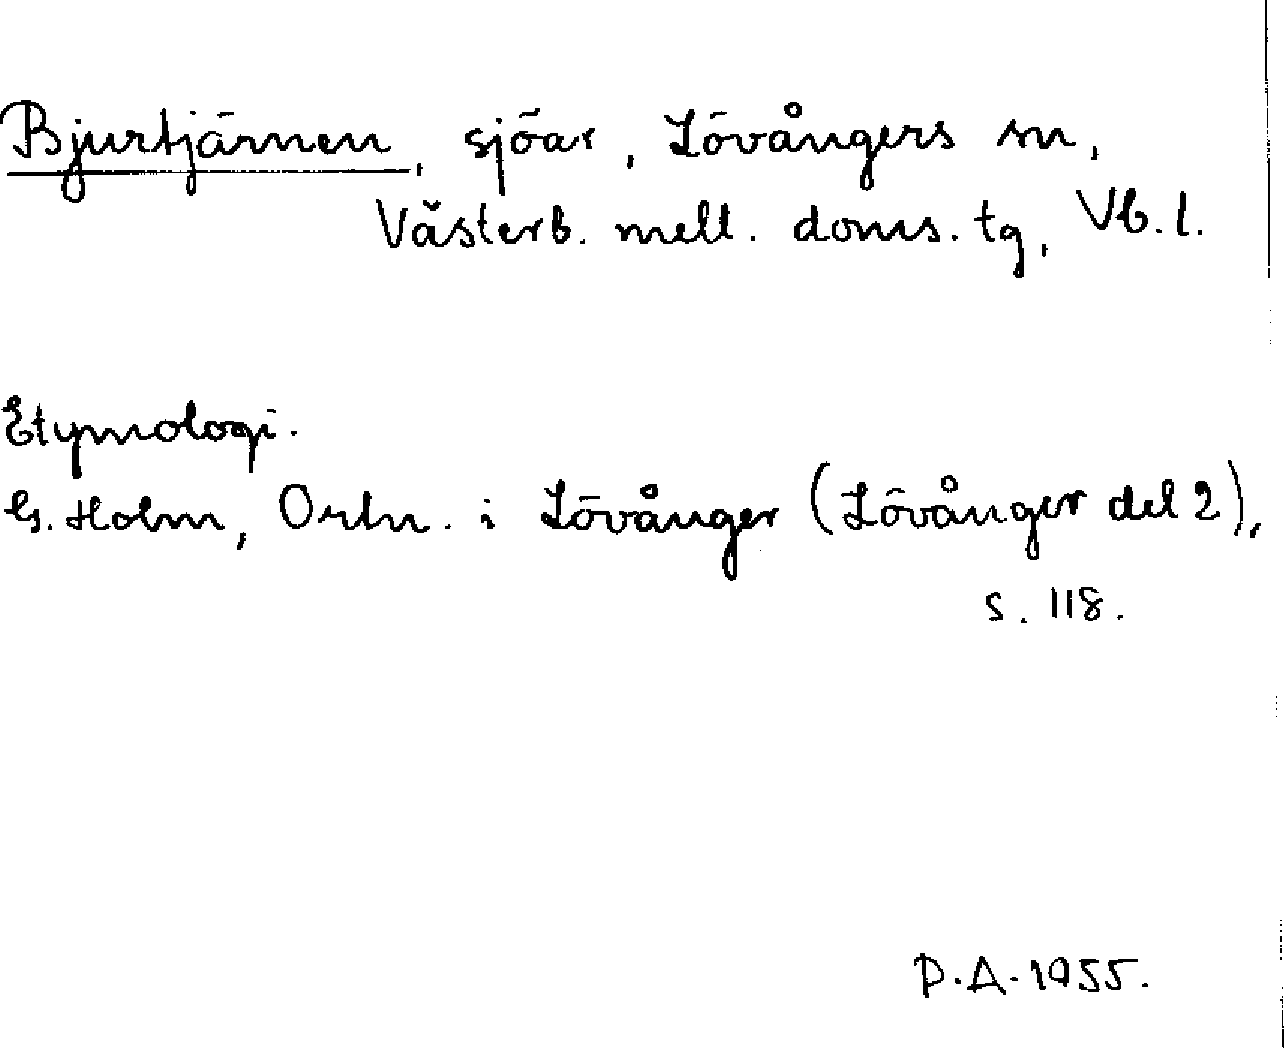 Bjurtjärnen, sjöar, Lövångers sn,
Västerb. mell. doms. tg, Vb. l.
Etymologi.
G. Holm, Ortn. i Lövånger (Lövånger del 2),
s. 118.
P.A. 1955.